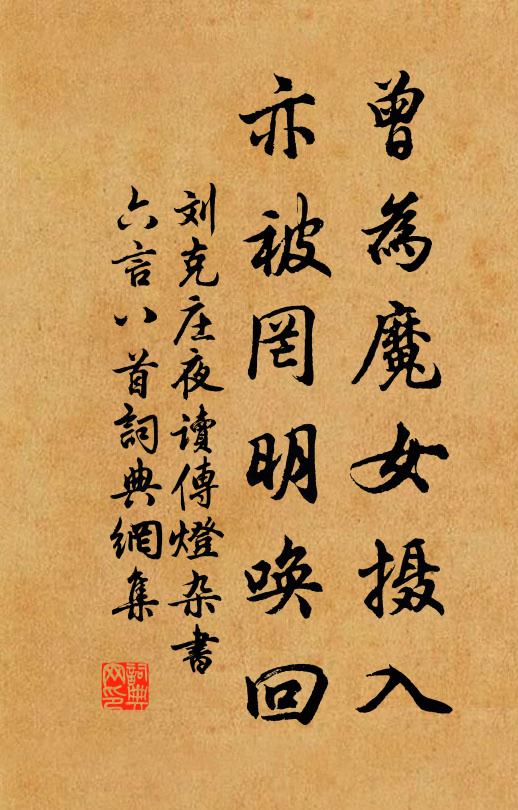 曾為魔女摄入
亦被罔明唤回
刘克庄夜读傳燈杂書
六言八首詞典網集
詞典网印